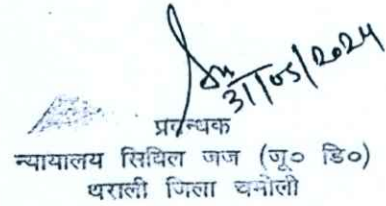 31/05/2024
प्रबन्धक
न्यायालय सिविल जज (जू० डि०)
थराली जिला चमोली